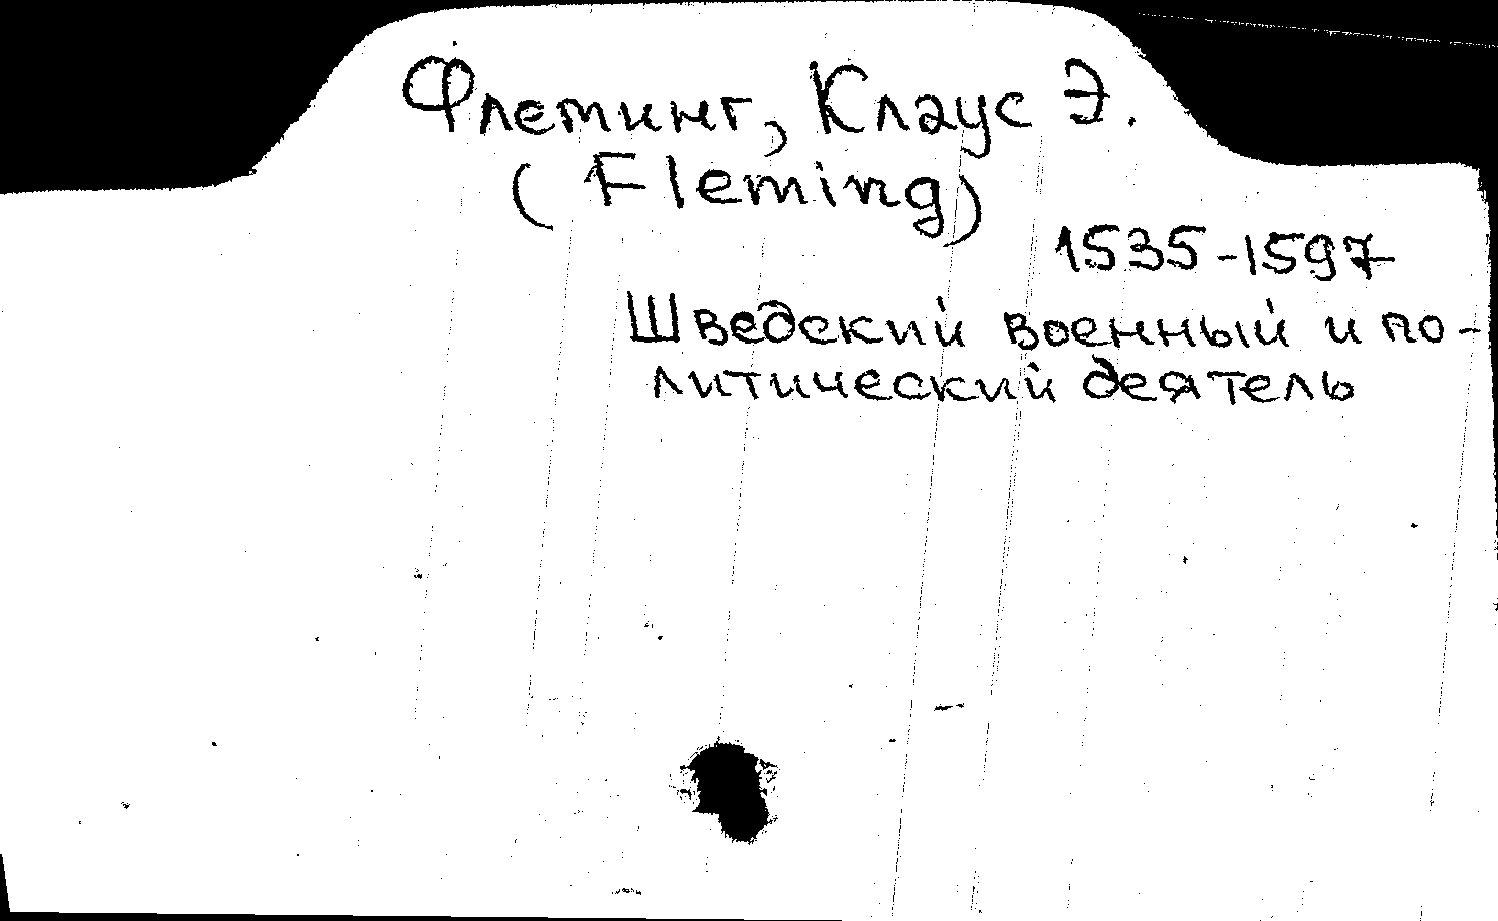 Флеминг, Клаус Э.
(Fleming)
1535-1597
Шведский военный и по-
литический деятель